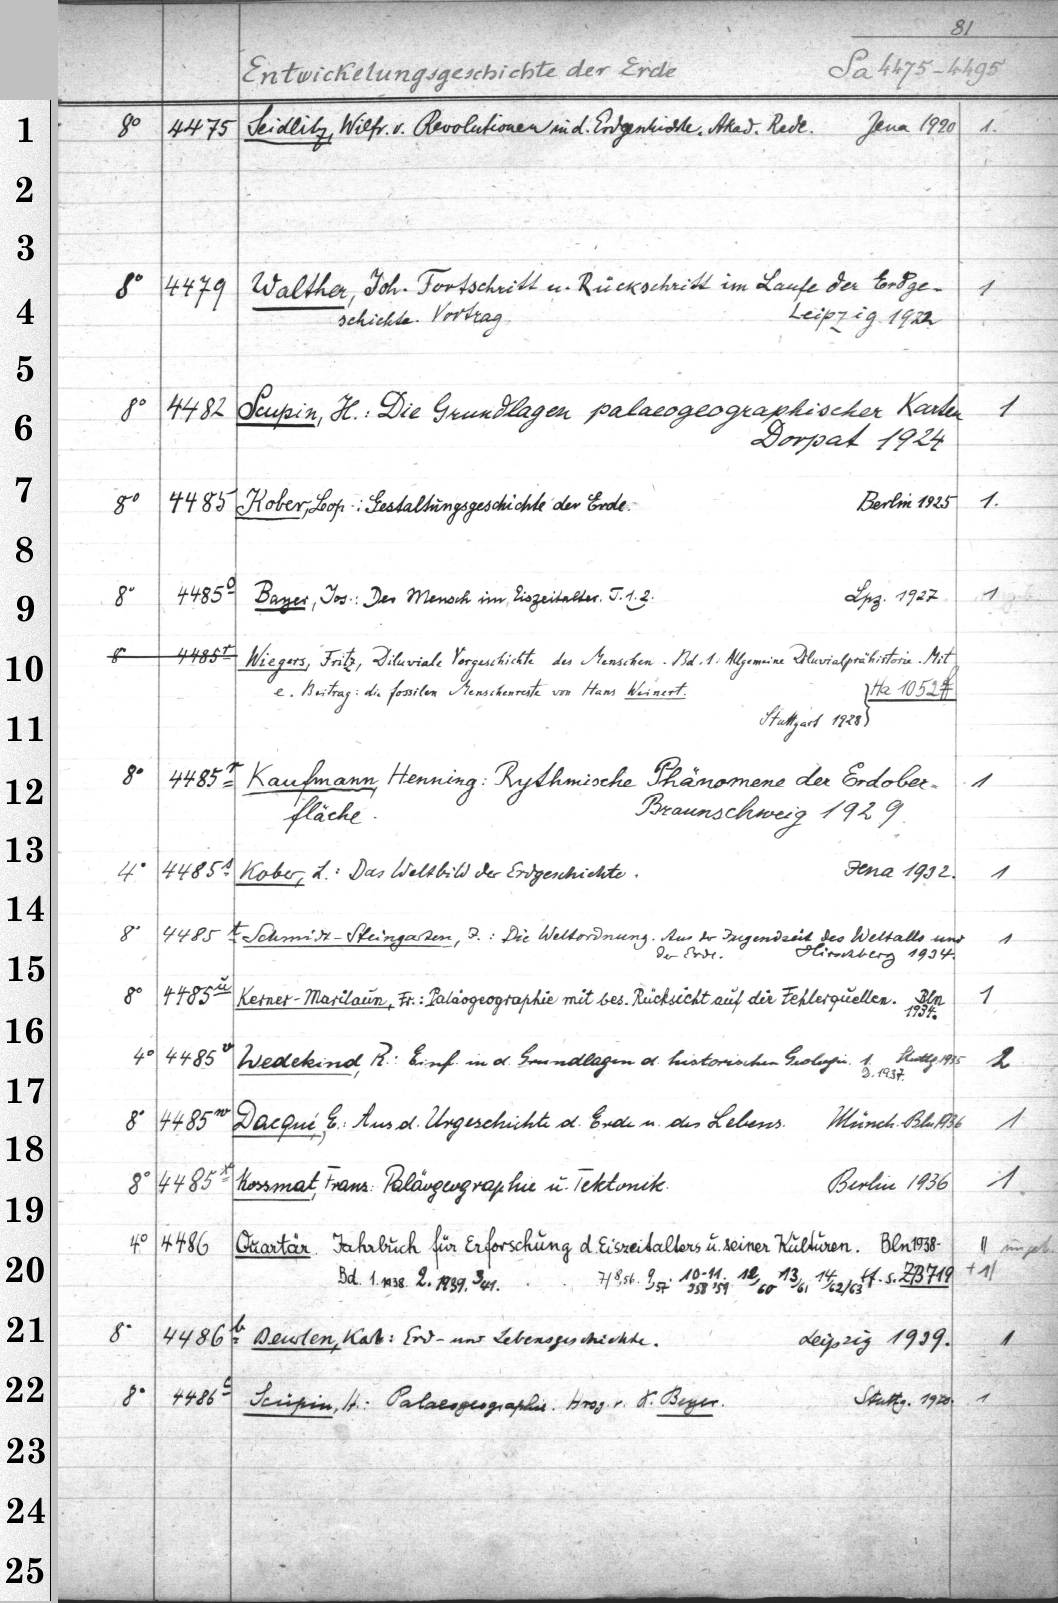 81
Entwickelungsgeschichte der Erde Sa 4475-4495
1 8° 4475 Seidlitz, Wilfr. v. Revolutionen in d. Erdgeschichte. Akad. Rede. Jena 1920 1.
2
3
8° 4479 Walther, Joh. Fortschritt u. Rückschritt im Laufe der Erdge- 1
4 schichte. Vortrag Leipzig 1922
5
8° 4482 Scupin, H.: Die Grundlagen palaeogeographischer Karten 1
6 Dorpat 1924
7 8° 4485 Kober, Leop.: Gestaltungsgeschichte der Erde. Berlin 1925 1.
8
9 8° 4485 Bayer, Jos.: Der Mensch im Eiszeitalter. T. 1.2. Lpz. 1927 1
10 8 4485 Wiegers, Fritz, Diluviale Vorgeschichte des Menschen. Bd. 1: Allgemeine Diluvialprähistorie. Mit
e. Beitrag: die fossilen Menschenreste von Hans Weinert. Ha 1052
11 Stuttgart 1928
12 8° 4485r Kaufmann, Henning: Rythmische Phänomene der Erdober- 1
fläche. Braunschweig 1929
13
4° 4485s Kober, L.: Das Weltbild der Erdgeschichte. Jena 1932. 1
14
8° 4485t Schmidt-Steingarten, F.: Die Weltordnung. Aus der Jugendzeit des Weltalls und 1
der Erde. Hirschberg 1934.
15
8° 4485u Kerner-Marilaun, Fr.: Paläogeographie mit bes. Rücksicht auf die Fehlerquellen. Bln 1
1934.
16
4° 4485v Wedekind, R.: Einf. in d. Grundlagen d. historischen Geologie. 1. Stuttg. 1935 2
1937.
17
8° 4485w Dacqué, E.: Aus d. Urgeschichte d. Erde u. des Lebens. Münch. Bln 1936 1
18
8° 4485x Kossmat, Franz: Paläogeographie u. Tektonik. Berlin 1936 1
19
4° 4486 Quartär. Jahrbuch für Erforschung d. Eiszeitalters u. seiner Kulturen. Bln 1938-
20 Bd. 1. 1938. 2. 1939. 3/41. 7/8,56. 9/57. 10-11. 958 '59 12/60 13/61 14/62/63 ff. s. ZB 719
21 8° 4486b Beurlen, Karl: Erd- und Lebensgeschichte. Leipzig 1939. 1
22 8° 4486c Scupin, H.: Palaeogeographie. Hrsg. v. K. Beyer. Stuttg. 1940. 1
23
24
25